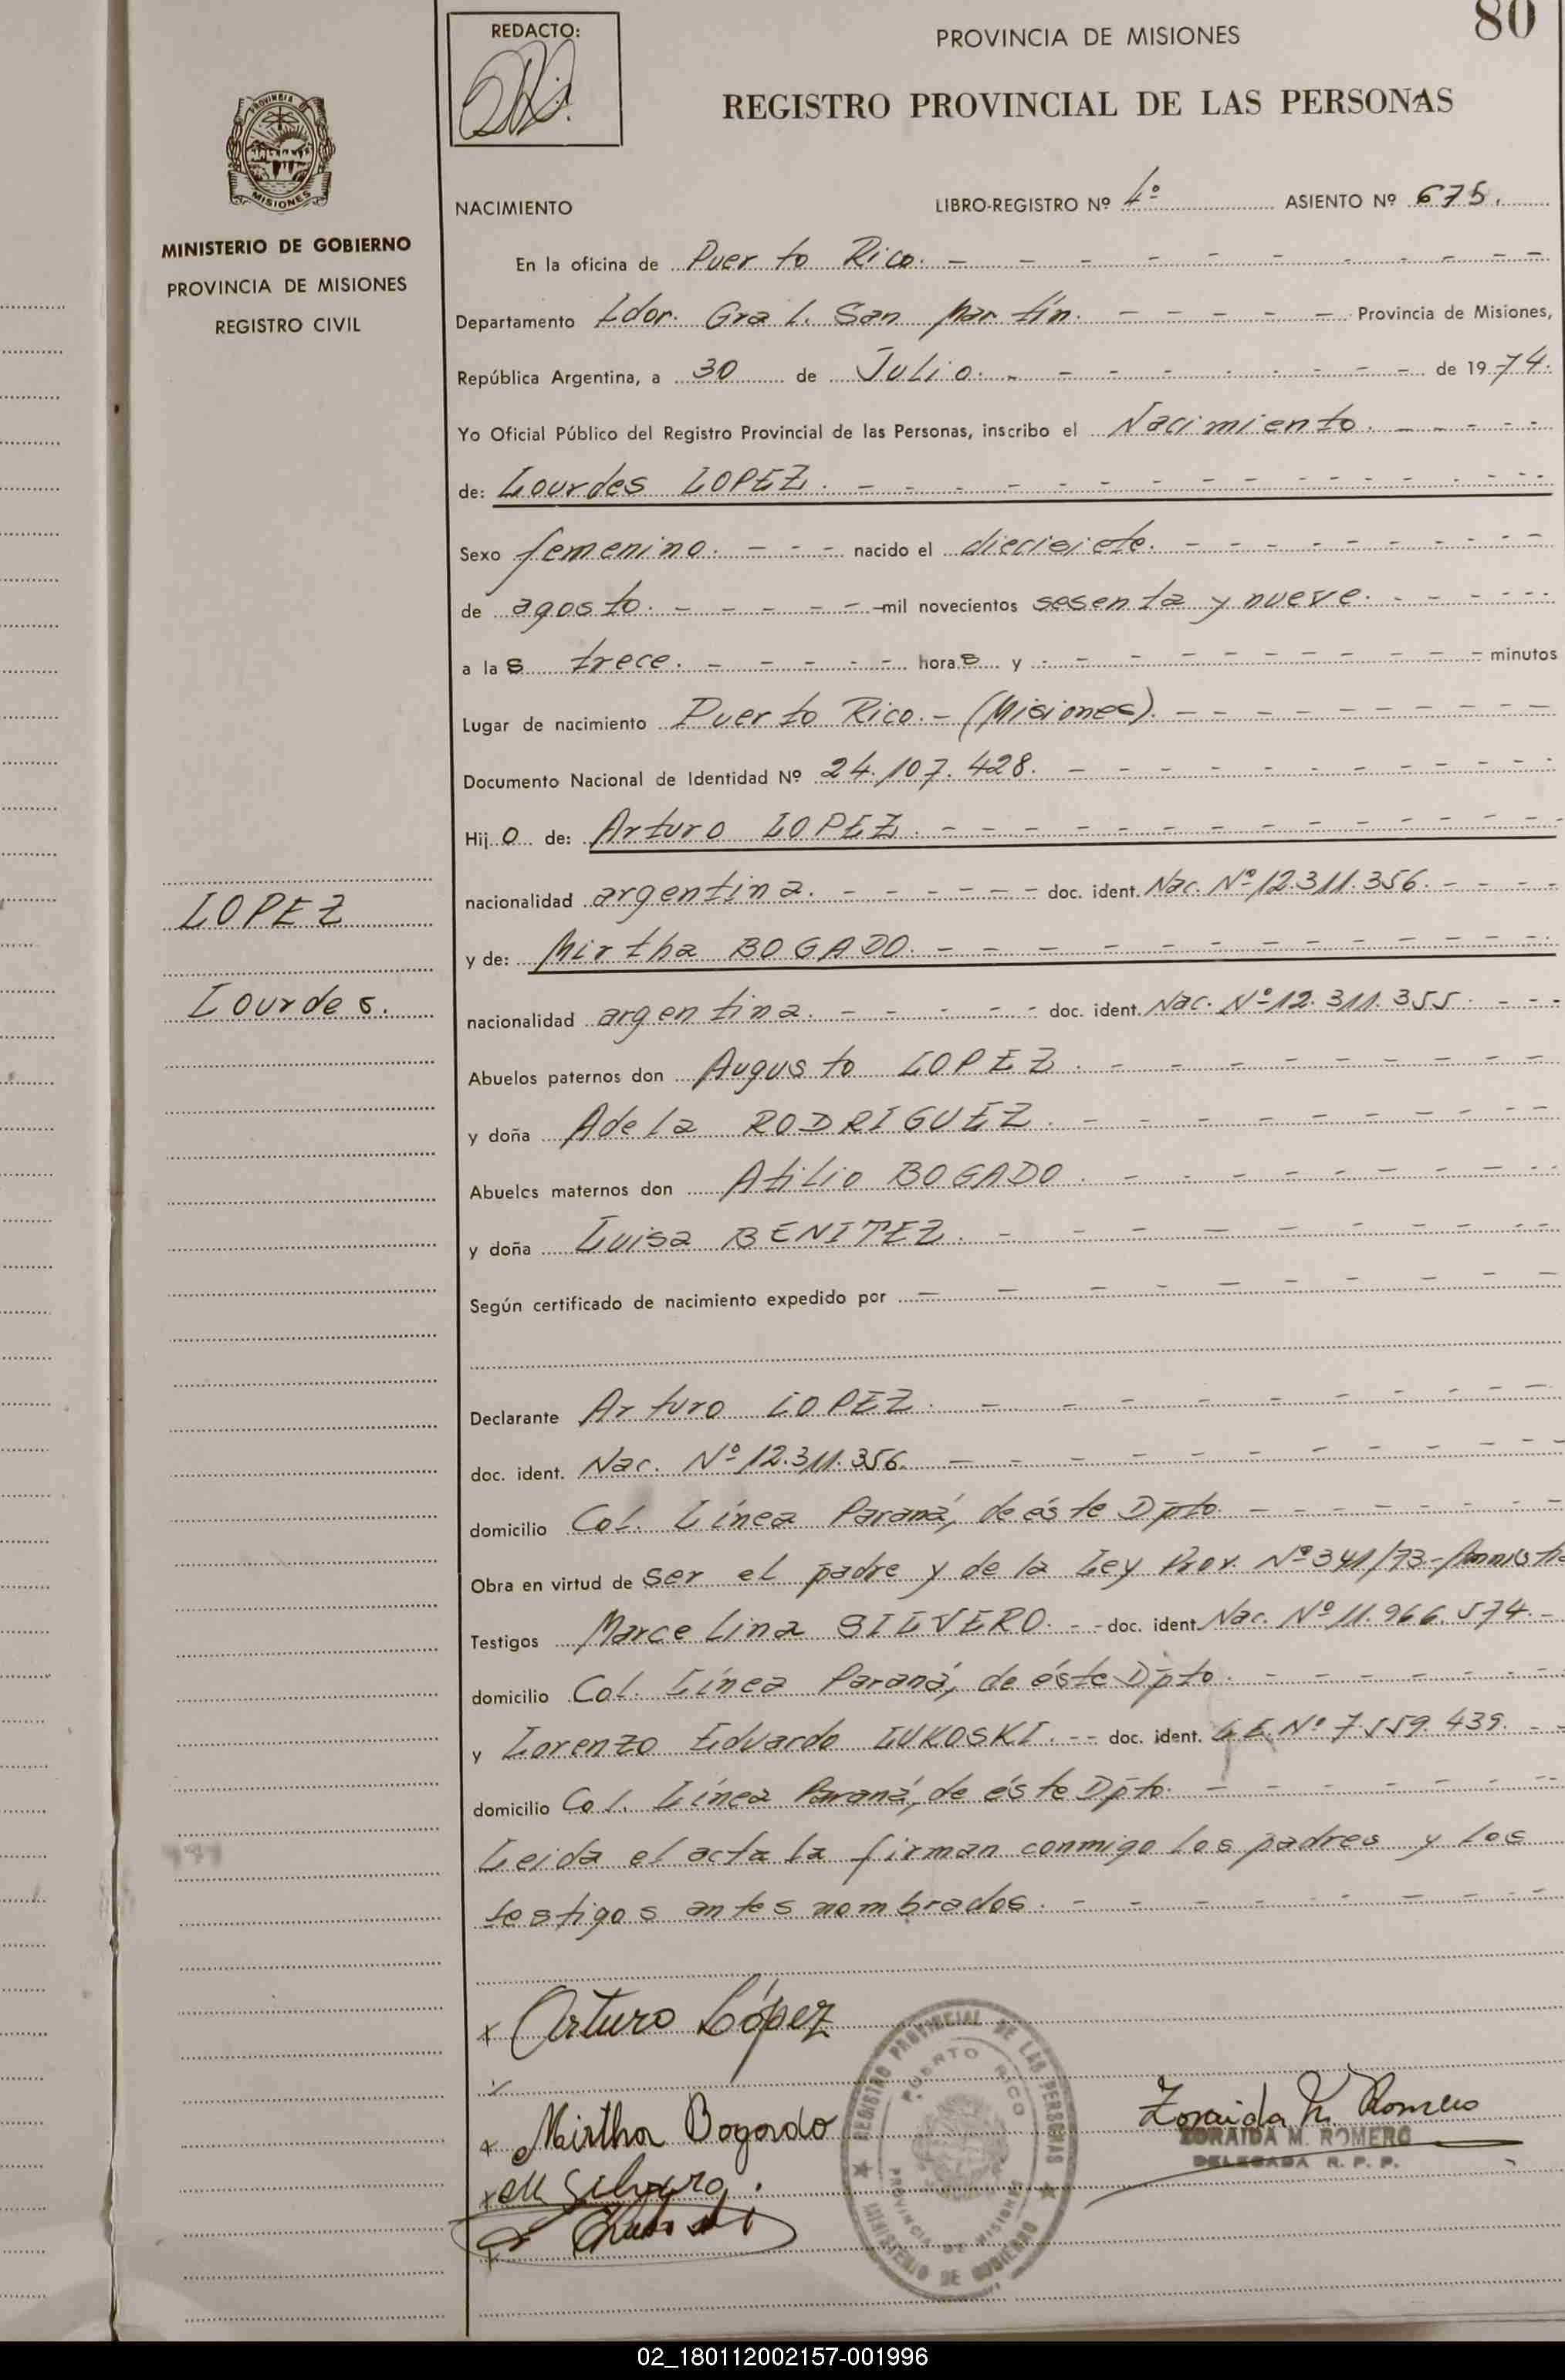 80
REDACTO:
PROVINCIA DE MISIONES
REGISTRO PROVINCIAL DE LAS PERSONAS
PROVINCIA
MISIONES
MINISTERIO DE GOBIERNO
PROVINCIA DE MISIONES
REGISTRO CIVIL
NACIMIENTO LIBRO-REGISTRO Nº 4º ASIENTO Nº 675.
En la oficina de Puerto Rico.
Departamento Ldor. Gral. San Martín. Provincia de Misiones,
República Argentina, a 30 de Julio. de 1974.
Yo Oficial Público del Registro Provincial de las Personas, inscribo el Nacimiento.
de: Lourdes LOPEZ.
Sexo femenino. nacido el diecisiete.
de agosto. mil novecientos sesenta y nueve.
a las trece. horas y minutos
Lugar de nacimiento Puerto Rico.- (Misiones).
Documento Nacional de Identidad Nº 24.107.428.
Hijo de: Arturo LOPEZ.
nacionalidad argentina. doc. ident. Nac. Nº 12.311.356.
y de: Mirtha BOGADO.
nacionalidad argentina. doc. ident. Nac. Nº 12.311.355.
Abuelos paternos don Augusto LOPEZ.
y doña Adela RODRIGUEZ.
Abuelos maternos don Atilio BOGADO.
y doña Luisa BENITEZ.
Según certificado de nacimiento expedido por
Declarante Arturo LOPEZ.
doc. ident. Nac. Nº 12.311.356.
domicilio Col. Línea Paraná, de éste Dpto.
Obra en virtud de ser el padre y de la Ley Prov. Nº 341/73.-
Testigos Marcelina SILVERO. doc. ident. Nac. Nº 11.966.574.
domicilio Col. Línea Paraná, de éste Dpto.
y Lorenzo Eduardo LUKOSKI. doc. ident. L.E. Nº 7.559.439.
domicilio Col. Línea Paraná, de éste Dpto.
Leida el acta la firman conmigo los padres y los
testigos antes nombrados.
LOPEZ
Lourdes.
x Arturo López
x Mirtha Bogado
x M Silvero.
Zoraida M. Romero
ZORAIDA M. ROMERO
DELEGADA R. P. P.
REGISTRO PROVINCIAL DE LAS PERSONAS
PUERTO RICO
PROVINCIA DE MISIONES
MINISTERIO DE GOBIERNO
02_180112002157-001996